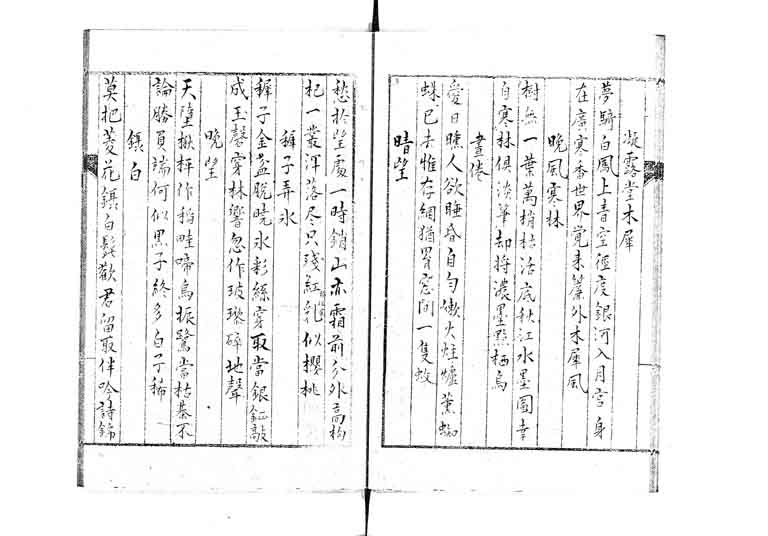 凝露堂木犀
夢騎白鳳上青空徑度銀河入月宮身
在廣寒香世界覺來簾外木犀風
晚風寒林
樹無一葉萬梢枯活底秋江水墨圖幸
自寒林俱淡筆却將濃墨點栖烏
晝倦
愛日醺人欲睡昏自勻嫩火炷爐薰蜘
蛛已去惟存網猶罥窓間一隻蚊
晴望
愁於望處一時銷山亦霜前分外高枸
杞一叢渾落尽只殘紅乳似櫻桃
稺子弄氷
稺子金盆脫曉氷彩絲穿取當銀鉦敲
成玉磬穿林響忽作玻瓈碎地聲
晚望
天墮楸枰作稻畦啼烏振鷺當枯棊不
論勝負端何似黑子終多白子稀
鑷白
莫把菱花鑷白髭歡君留取伴吟詩錦